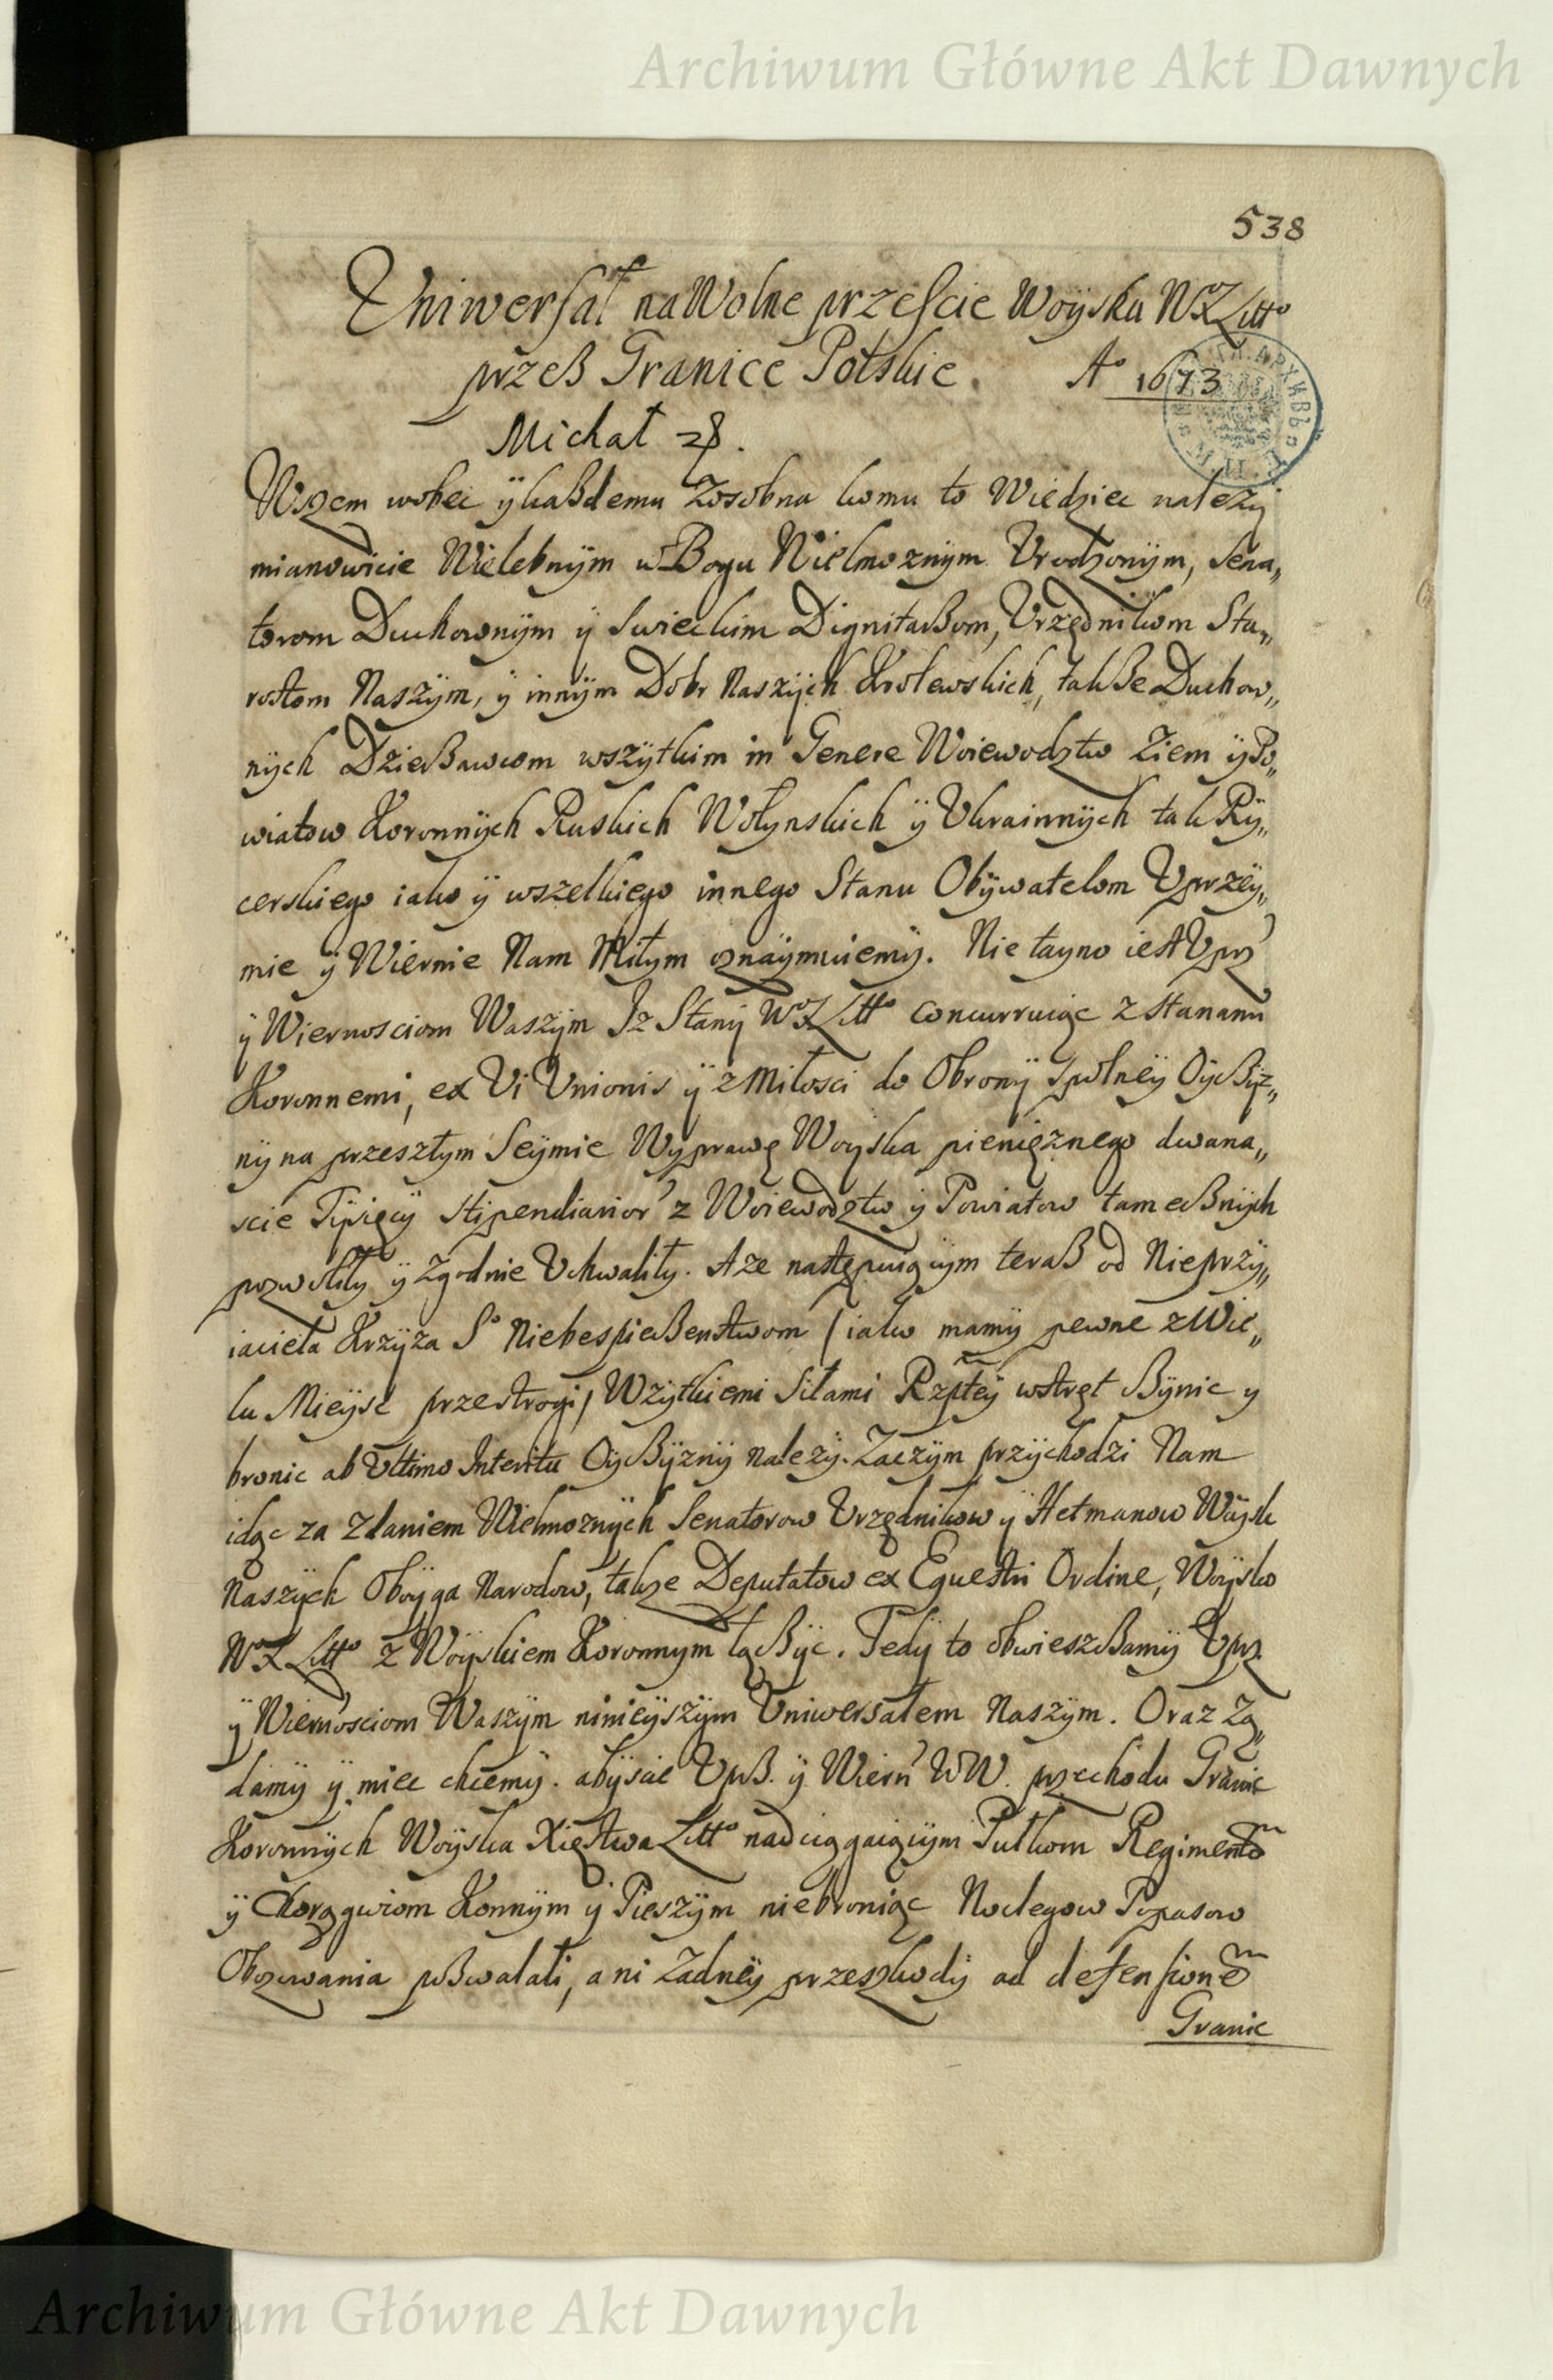 Archiwum Główne Akt Dawnych
538
Uniwersał na Wolne przeście Woÿska WXLitt°
przeß Granice Polskie. A° 1673
Michał
Wszem wobec ÿ kaßdemu Zosobna komu to Wiedziec należy
mianowicie Wielebnÿm w Bogu Wielmoznÿm Vrodzonÿm, Sena„
torom Duchownÿm ÿ Swieckim Dignitaßom, Vrzędnikom Sta„
rostom Naszÿm, ÿ innÿm Dobr Naszÿch Krolewskich, takße Duchow„
nÿch Dzierßawcom wszÿtkim in Genere Woiewodztw Ziem ÿ Po„
wiatow Koronnÿch Ruskich Wołynskich ÿ Vkrainnÿch tak Rÿ„
cerskiego iako ÿ wszelkiego innego Stanu Obÿwatelom Vprzeÿ„
mie ÿ Wiernie Nam Miłym oznaÿmuiemÿ. Nie tayno iest Vprz
ÿ Wiernosciom Waszÿm Jz Stanÿ WXLitt° concurruiąc z Stanami
Koronnemi, ex Vi Vnionis ÿ z Miłosci do Obronÿ Spolneÿ Oÿcßÿz„
nÿ na przeszłym Seÿmie Wyprawę Woÿska pienięznego dwana„
scie Tÿsięcÿ stipendiarior z Woiewodztw ÿ Powiatow tameßnÿch
pozwoliły ÿ Zgodnie Vchwaliły. A ze następuiącym teraß od Nieprzÿ„
iaciela Krzÿża S° Niebespießenstwom / iako mamÿ pewne z Wie„
lu Mieÿsc przestrogi / Wszÿtkiemi Siłami Rzpteÿ wstręt ßÿnic y
bronic ab Vltimo Interitu Oÿcßÿznÿ należÿ. Zaczÿm przÿchodzi Nam
idąc za Zdaniem Wielmoznÿch Senatorow Vrzędnikow ÿ Hetmanow Woÿsk
Naszÿch Oboÿga Narodow, takze Deputatow ex Equestri Ordine, Woÿsko
WXLitt° z Woÿskiem Koronnym łąßÿc. Tedÿ to obwieszßamÿ Vprz
ÿ Wiernosciom Waszÿm ninieÿszÿm Uniwersałem Naszÿm. Oraz Zą„
damÿ ÿ miec chcemÿ. abÿscie Vprß. ÿ Wiern WW. przechodu Granic
Koronnÿch Woÿska Xięstwa Litt° nadciągaiącÿm Pułkom Regimento
ÿ Chorągwiom Konnÿm ÿ Pieszÿm niebroniąc Noclegow Popasow
Obozowania pozwalali, ani Zadneÿ przeszkodÿ ad defensione
Granic
Archiwum Główne Akt Dawnych